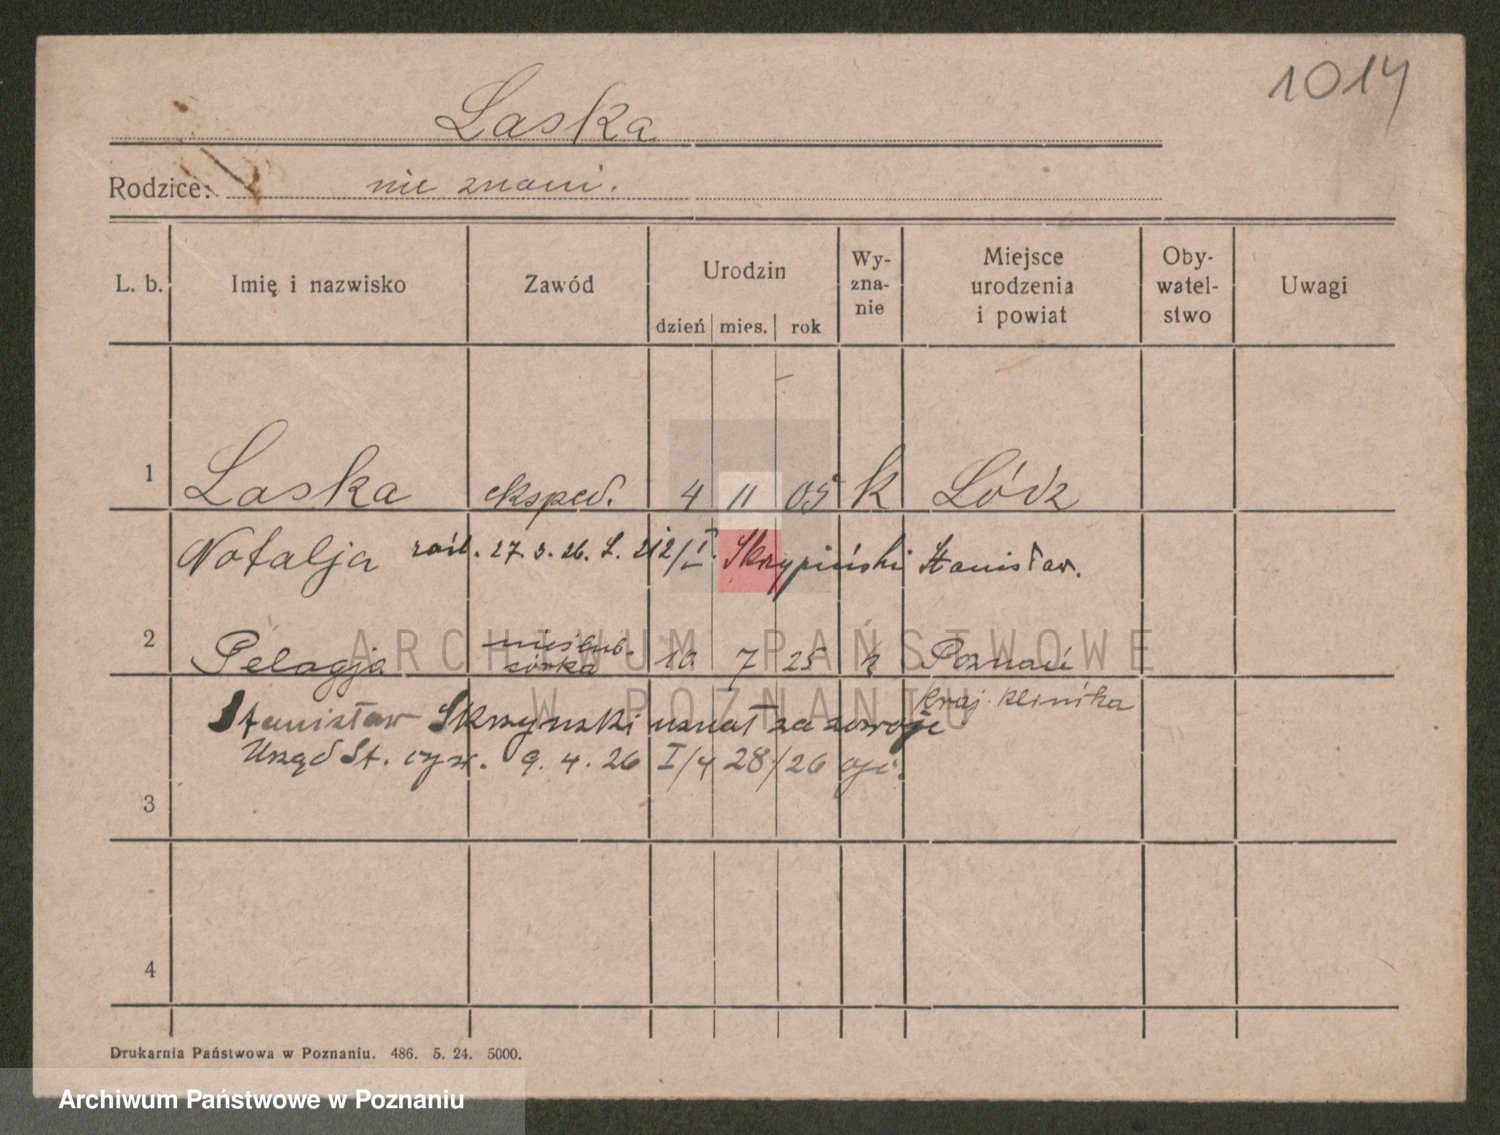 1014
Laska
Rodzice: nie znani.
L. b. Imię i nazwisko Zawód Urodzin dzień mies. rok Wy-zna-nie Miejsce urodzenia i powiat Oby-watel-stwo Uwagi
1 Laska eksped. 4 11 05 k Łódz
Natalja zaśl. 27. 3. 26. L. 212/I. Skrzypiński Stanisław.
2 Pelagja nieślub-córka 10 7 25 k Poznań
kraj. klinika
Stanisław Skrzynski uznał za swoje
Urząd St. cyw. 9. 4. 26 I/4 28/26
3
4
Drukarnia Państwowa w Poznaniu. 486. 5. 24. 5000.
ARCHIWUM PAŃSTWOWE
W POZNANIU
Archiwum Państwowe w Poznaniu